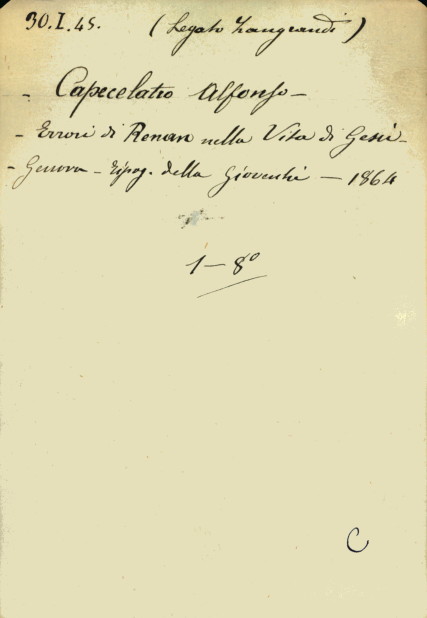 30.I.45. (Legato Zangrandi)
- Capecelatro Alfonso -
- Errori di Renan nella Vita di Gesù -
- Genova - Tipog. della Gioventù - 1864
1 - 8º
C